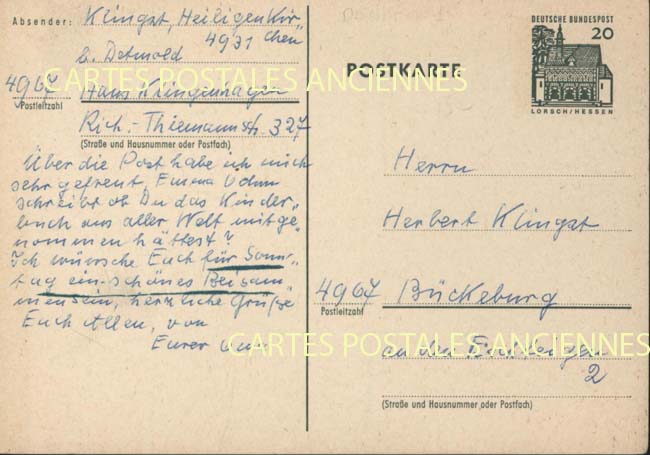 Absender: Klingst, Heiligenkir-
4931 chen
b. Detmold
4967 Haus Klingenhagen
Postleitzahl
Rich.-Thiemannstr. 327
(Straße und Hausnummer oder Postfach)
Über die Post habe ich mich
sehr gefreut, Emma
schreibt ob Du das Kinder-
buch aus aller Welt mitge-
nommen hättest?
Ich wünsche Euch für Sonn-
tag ein schönes Beisam-
mensein, herzliche Grüße
Euch Allen, von
Eurer
POSTKARTE
DEUTSCHE BUNDESPOST
20
LORSCH/HESSEN
Herrn
Herbert Klingst
4967 Bückeburg
Postleitzahl
an den
2
(Straße und Hausnummer oder Postfach)
CARTES POSTALES ANCIENNES
CARTES POSTALES ANCIENNES